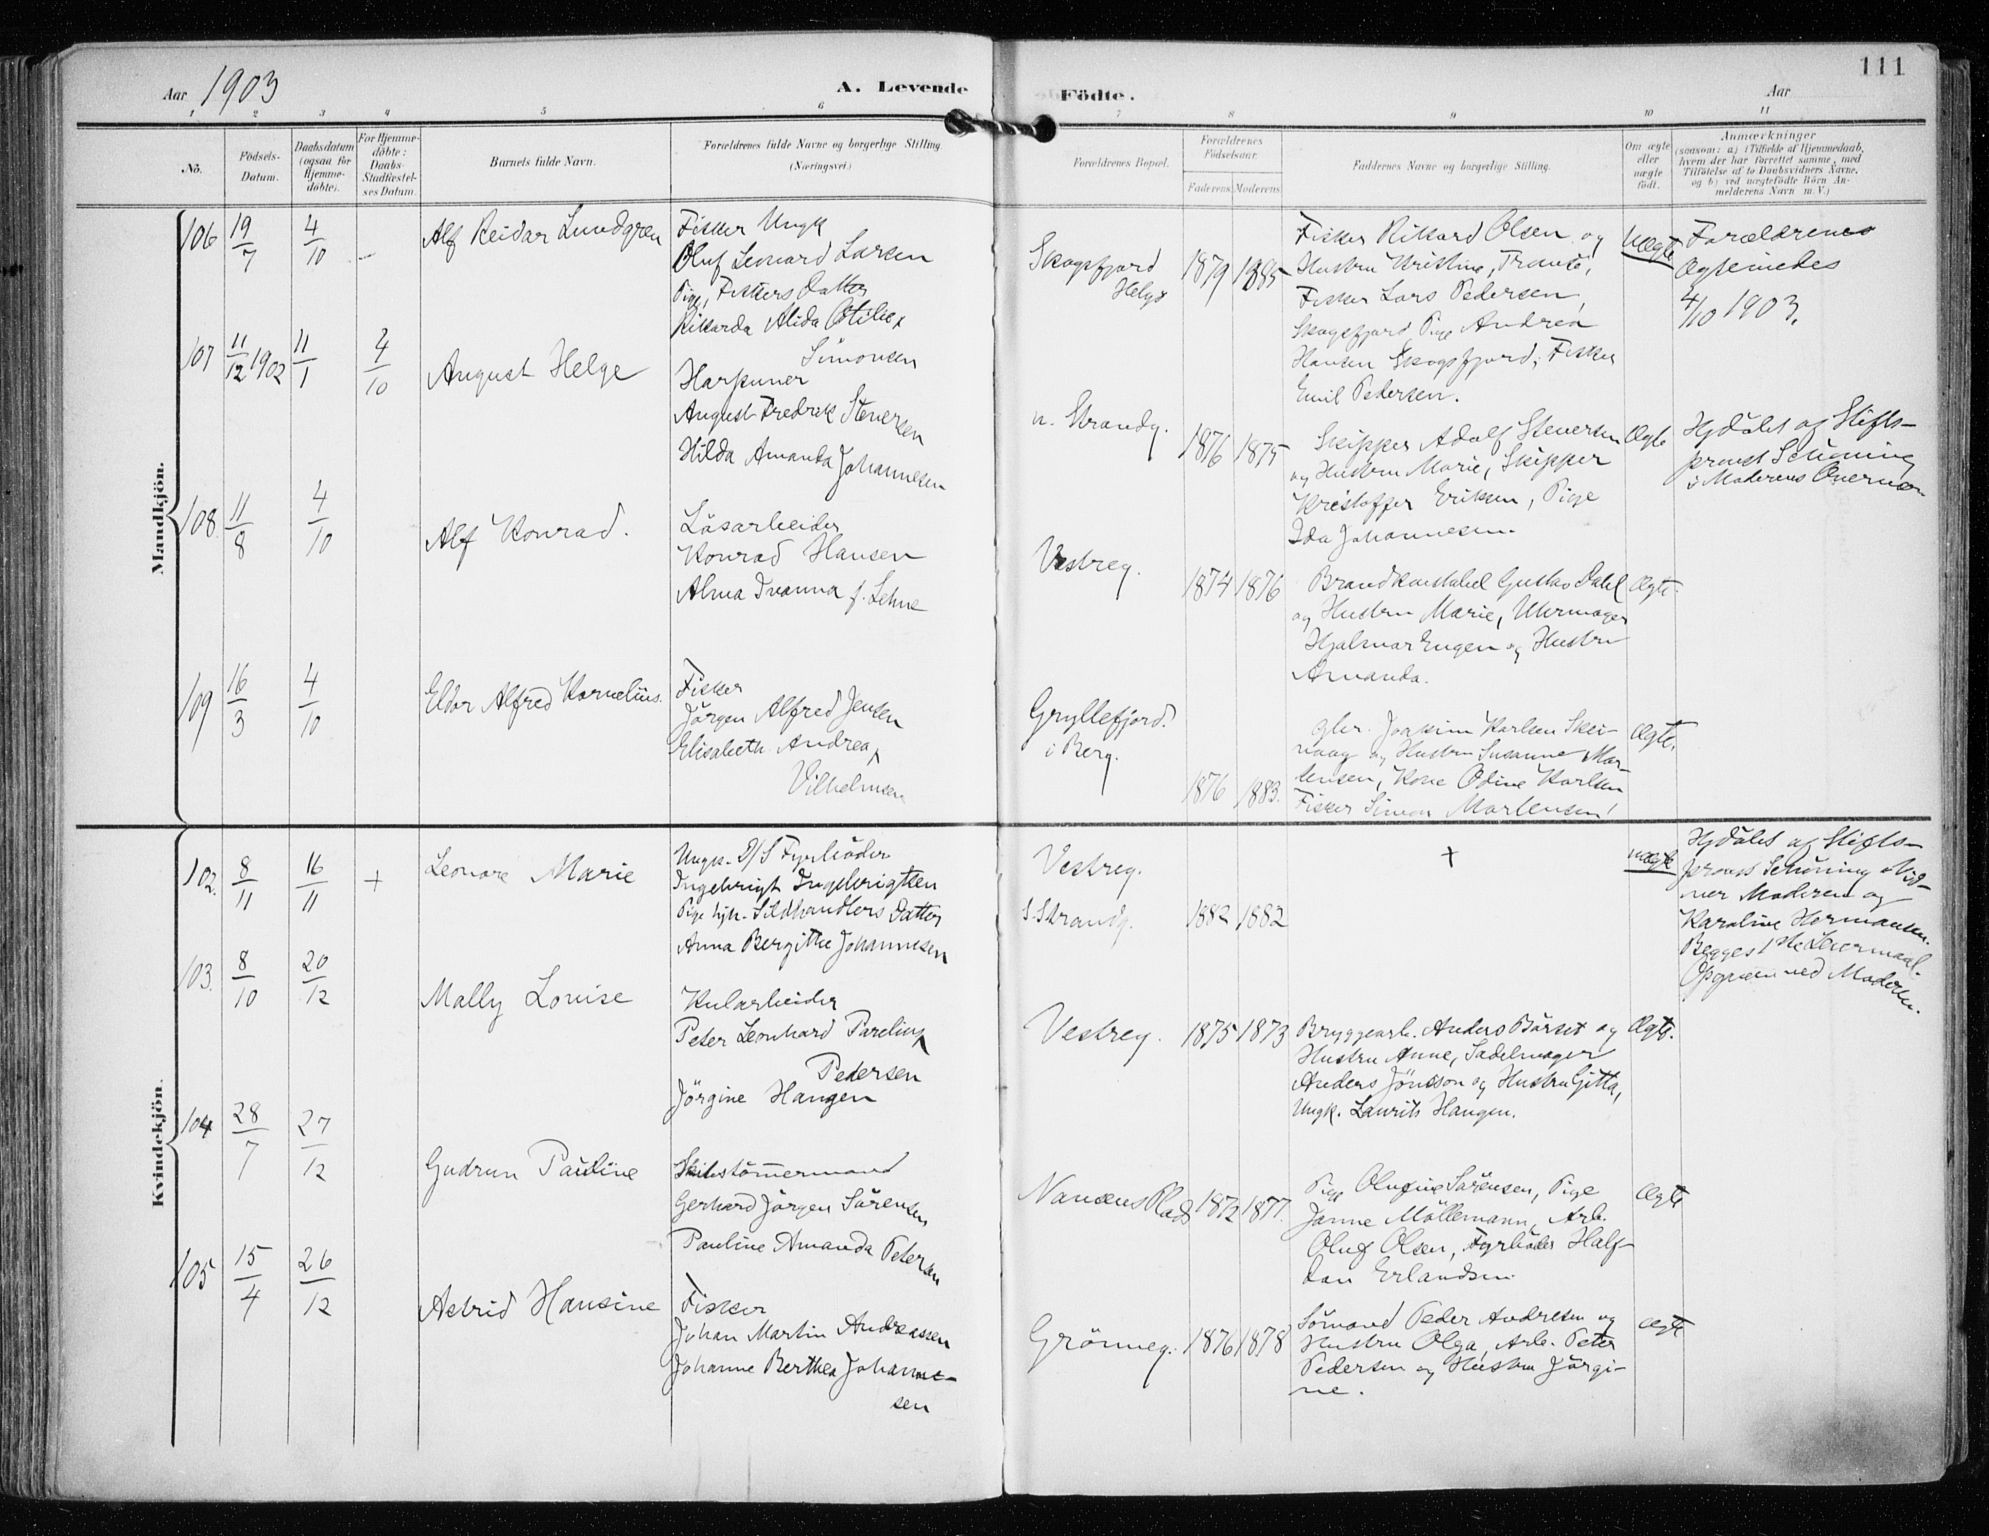 Aar 1903
A. Levende
Födte.
Aar
111
1 2 3 4 5 6 7 8 9 10 11
No.
Födsels-
Datum.
Daabsdatum
(ogsaa for
Hjemme-
döbte).
For Hjemme-
döbte:
Daabs-
Stadfæstel-
ses Datum.
Barnets fulde Navn.
Forældrenes fulde Navne og borgerlige Stilling
(Næringsvei)
Forældrenes Bopæl.
Forældrenes
Födselsaar.
Faderens
Moderens
Faddernes Navne og borgerlige Stilling.
Om ægte
eller
uægte
födt.
Anmærkninger
(saasom: a) i Tilfælde af Hjemmedaab,
hvem der har forrettet samme, med
Tilföielse af to Daabsvidners Navne.
og b) ved uægtefödte Börn An-
melderens Navn m. V.)
Mandkjön.
106 19/7 4/10 –
Alf Reidar Lundgren
Fisker Ungk
Oluf Leonard Larsen
Pige, Fiskers Datter
Rikkarda Alida Otilie
Simonsen
Skogsfjord
Helgø
1879 1885
Fisker Rikkard Olsen og
Hustru Kristine, Tromsö,
Fisker Lars Pedersen,
Skogsfjord Pige Andrea
Hansen Skogsfjord, Fisker
Emil Pedersen.
Uægte
Forældrenes
Ægteviedes
4/10 1903.
107 11/12 1902 11/1 4/10
August Helge
Harpuner
August Fredrik Stenersen
Hilda Amanda Johannesen
n. Strandg.
1876 1875
Skipper Adolf Stenersen
og Hustru Marie, Skipper
Kristoffer Eriksen, Pige
Ida Johannesen.
Ægte
Hjdöbt af Stifts-
provst Schöning
i Moderens Nærvær
108 11/8 4/10
Alf Konrad.
Lösarbeider
Konrad Hansen
Alma Ivanna f. Lehne
Vestreg.
1874 1876
Brandkonstabel Gustav Dahl
og Hustru Marie, Uhrmager
Hjalmar Eugen og Hustru
Amanda.
Ægte.
109 16/3 4/10
Eldor Alfred Kornelius.
Fisker
Jörgen Alfred Jensen
Elisabeth Andrea
Vilhelmsen
Gryllefjord.
i Berg.
1876 1883.
gbr. Joakim Karlsen Skei-
vaag og Hustru Susanne Mor-
tensen, Kone Odine Karlsen
Fisker Simon Mortensen
Ægte.
Kvindekjön.
102. 8/11 16/11 +
Leonore Marie
Ungk. D/S Fyrböder
Ingebrigt Ingebrigtsen
Pige hjh. Sildhandlers Datter
Anna Bergitte Johannesen
Vestreg.
S. Strandg.
1882 1882
+
uægte
Hjdöbt af Stifts-
provst Schöning Vid-
ner Moderen og
Karoline Hermansen.
Begges 1ste Leiermaal.
Opgiven ved Moderen.
103. 8/10 20/12
Mally Louise
Kularbeider
Peter Leonhard Parelius
Pedersen
Jörgine Haugen
Vestreg.
1875 1873
Bryggearb. Anders Börset og
Hustru Anne, Sadelmager
Anders Jönsson og Hustru Gitta,
Ungk. Laurits Haugen.
Ægte.
104 28/7 27/12
Gudrun Pauline
Skibstömmermand
Gerhard Jörgen Sörensen
Pauline Amanda Petersen
Nansens Plads
1872 1877.
Pige Olufine Sörensen, Pige
Janne Möllemann, Arb.
Oluf Olsen, Fyrböder Half-
dan Erlandsen.
Ægte
105 15/4 26/12
Astrid Hansine
Fisker
Johan Martin Andreassen
Johanne Berthea Johanne-
sen
Grönneg.
1876 1878
Sömand Peder Andresen og
Hustru Olga, Arb. Peter
Pedersen og Hustru Jörgi-
ne.
Ægte